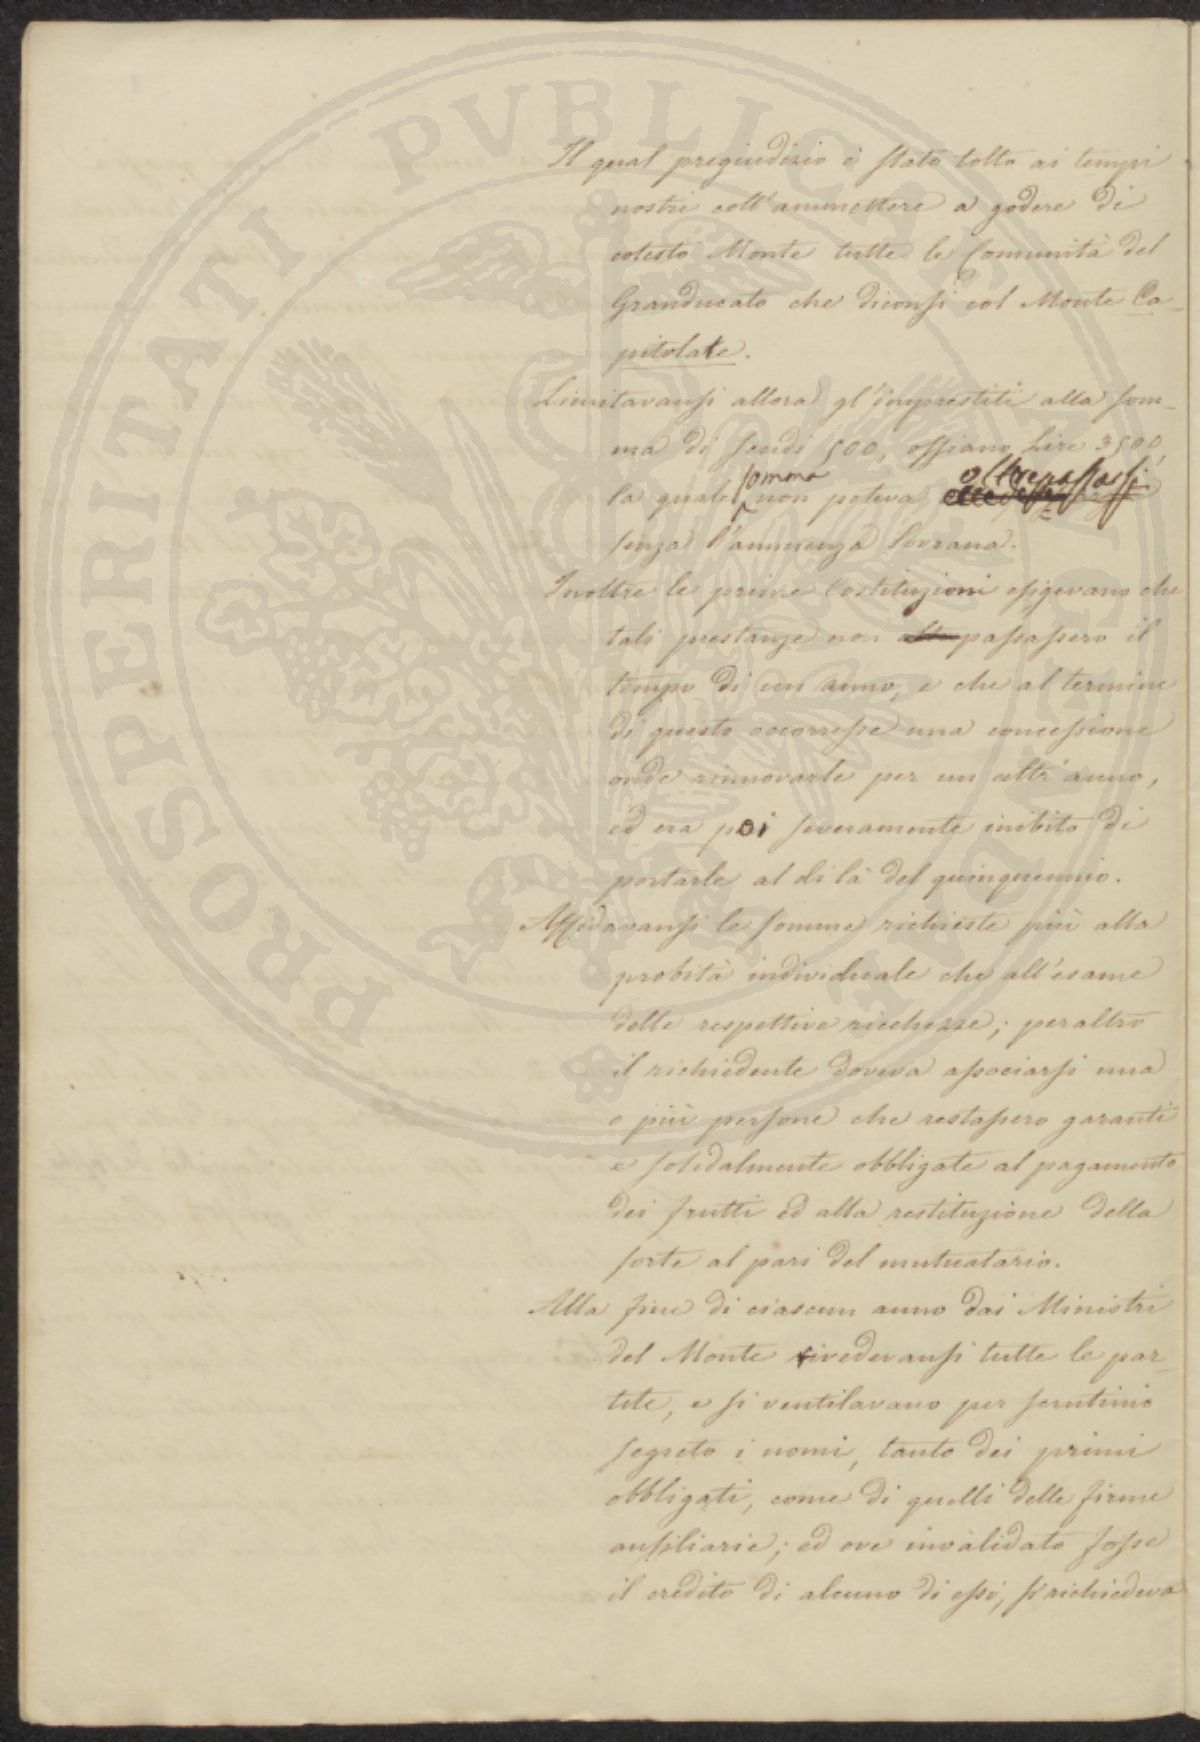 Il qual pregiudizio è stato tolto ai tempi
nostri coll'ammettere a godere di
cotesto Monte tutte le Comunità del
Granducato che diconsi col Monte Ca-
pitolate.
Limitavansi allora gl'imprestiti alla som-
ma di scudi 500, ossiano Lire 3500,
la quale somma non poteva oltrepassarsi
senza l'annuenza Sovrana.
Inoltre le prime Costituzioni esigevano che
tali prestanze non passassero il
tempo di un anno, e che al termine
di questo occorresse una concessione
onde rinnovarle per un altr'anno,
ed era poi severamente inibito di
portarle al di là del quinquennio.
Affidavansi le somme richieste più alla
probità individuale che all'esame
delle respettive ricchezze; peraltro
il richiedente doveva associarsi una
o più persone che restassero garanti
e solidalmente obbligate al pagamento
dei frutti ed alla restituzione della
sorte al pari del mutuatario.
Alla fine di ciascun anno dai Ministri
del Monte rivedevansi tutte le par-
tite, e si ventilavano per scrutinio
segreto i nomi, tanto dei primi
obbligati, come di quelli delle firme
ausiliarie; ed ove invalidato fosse
il credito di alcuno di essi, si richiedeva
PROSPERITATI PVBLICAE AVGENDAE